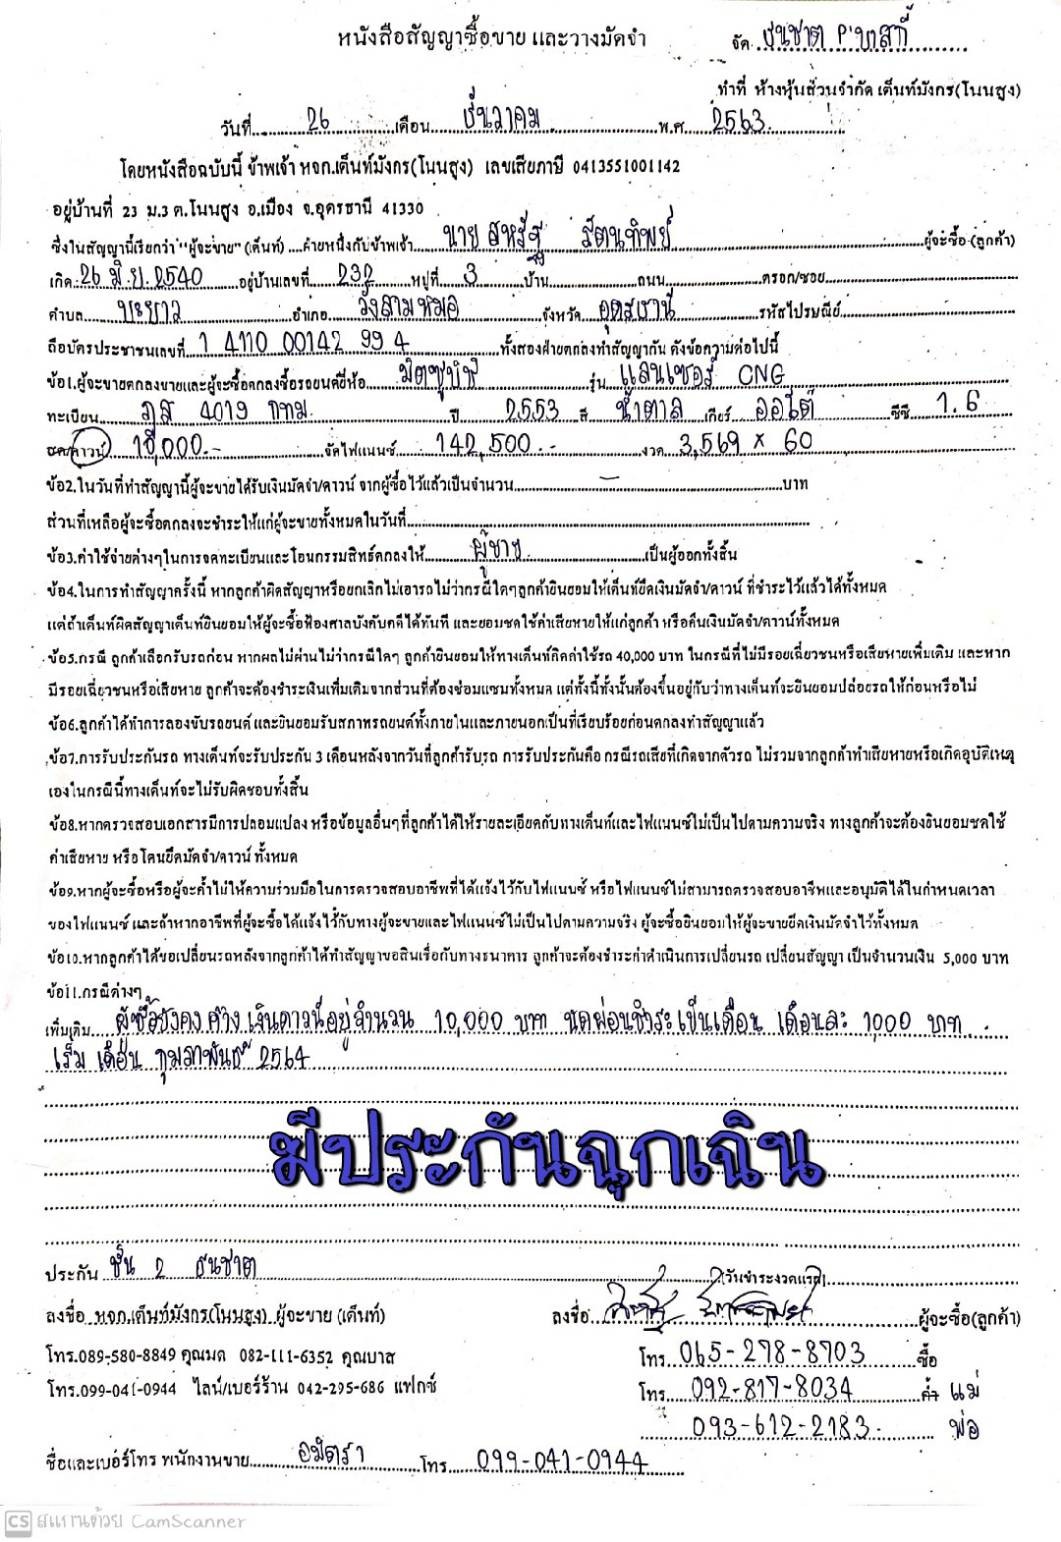 หนังสือสัญญาซื้อขาย และวางมัดจำ จัด ธนชาต P'บาสกี้
ทำที่ ห้างหุ้นส่วนจำกัด เต็นท์มังกร(โนนสูง)
วันที่ 26 เดือน ธันวาคม พ.ศ. 2563
โดยหนังสือฉบับนี้ ข้าพเจ้า หจก.เต็นท์มังกร(โนนสูง) เลขเสียภาษี 0413551001142
อยู่บ้านที่ 23 ม.3 ต.โนนสูง อ.เมือง จ.อุดรธานี 41330
ซึ่งในสัญญานี้เรียกว่า "ผู้จะขาย" (เต็นท์) ฝ่ายหนึ่งกับข้าพเจ้า นาย สหรัฐ รัตนทิพย์ ผู้จะซื้อ (ลูกค้า)
เกิด 26 มิ.ย. 2540 อยู่บ้านเลขที่ 232 หมู่ที่ 3 บ้าน ถนน ตรอก/ซอย
ตำบล บะยาว อำเภอ วังสามหมอ จังหวัด อุดรธานี รหัสไปรษณีย์
ถือบัตรประชาชนเลขที่ 1 4110 00142 99 4 ทั้งสองฝ่ายตกลงทำสัญญากัน ดังข้อความต่อไปนี้
ข้อ1.ผู้จะขายตกลงขายและผู้จะซื้อตกลงซื้อรถยนต์ยี่ห้อ มิตซูบิชิ รุ่น แลนเซอร์ CNG
ทะเบียน ฎส 4019 กทม. ปี 2553 สี น้ำตาล เกียร์ ออโต้ ซีซี 1.6
ดาวน์ 10,000.- จัดไฟแนนซ์ 142,500.- งวด 3,569 x 60
ข้อ2.ในวันที่ทำสัญญานี้ผู้จะขายได้รับเงินมัดจำ/ดาวน์ จากผู้ซื้อไว้แล้วเป็นจำนวน - บาท
ส่วนที่เหลือผู้จะซื้อตกลงจะชำระให้แก่ผู้จะขายทั้งหมดในวันที่
ข้อ3.ค่าใช้จ่ายต่างๆในการจดทะเบียนและโอนกรรมสิทธิ์ตกลงให้ ผู้ขาย เป็นผู้ออกทั้งสิ้น
ข้อ4.ในการทำสัญญาครั้งนี้ หากลูกค้าผิดสัญญาหรือยกเลิกไม่เอารถไม่ว่ากรณีใดๆลูกค้ายินยอมให้เต็นท์ยึดเงินมัดจำ/ดาวน์ ที่ชำระไว้แล้วได้ทั้งหมด
แต่ถ้าเต็นท์ผิดสัญญาเต็นท์ยินยอมให้ผู้จะซื้อฟ้องศาลบังคับคดีได้ทันที และยอมชดใช้ค่าเสียหายให้แก่ลูกค้า หรือคืนเงินมัดจำ/ดาวน์ทั้งหมด
ข้อ5.กรณี ลูกค้าเลือกรับรถก่อน หากผลไม่ผ่านไม่ว่ากรณีใดๆ ลูกค้ายินยอมให้ทางเต็นท์คิดค่าใช้รถ 40,000 บาท ในกรณีที่ไม่มีรอยเฉี่ยวชนหรือเสียหายเพิ่มเติม และหาก
มีรอยเฉี่ยวชนหรือเสียหาย ลูกค้าจะต้องชำระเงินเพิ่มเติมจากส่วนที่ต้องซ่อมแซมทั้งหมด แต่ทั้งนี้ทั้งนั้นต้องขึ้นอยู่กับว่าทางเต็นท์จะยินยอมปล่อยรถให้ก่อนหรือไม่
ข้อ6.ลูกค้าได้ทำการลองขับรถยนต์ และยินยอมรับสภาพรถยนต์ทั้งภายในและภายนอกเป็นที่เรียบร้อยก่อนตกลงทำสัญญาแล้ว
ข้อ7.การรับประกันรถ ทางเต็นท์จะรับประกัน 3 เดือนหลังจากวันที่ลูกค้ารับรถ การรับประกันคือ กรณีรถเสียที่เกิดจากตัวรถ ไม่รวมจากลูกค้าทำเสียหายหรือเกิดอุบัติเหตุ
เองในกรณีนี้ทางเต็นท์จะไม่รับผิดชอบทั้งสิ้น
ข้อ8.หากตรวจสอบเอกสารมีการปลอมแปลง หรือข้อมูลอื่นๆที่ลูกค้าได้ให้รายละเอียดกับทางเต็นท์และไฟแนนซ์ไม่เป็นไปตามความจริง ทางลูกค้าจะต้องยินยอมชดใช้
ค่าเสียหาย หรือโดนยึดมัดจำ/ดาวน์ ทั้งหมด
ข้อ9.หากผู้จะซื้อหรือผู้จะค้ำไม่ให้ความร่วมมือในการตรวจสอบอาชีพที่ได้แจ้งไว้กับไฟแนนซ์ หรือไฟแนนซ์ไม่สามารถตรวจสอบอาชีพและอนุมัติได้ในกำหนดเวลา
ของไฟแนนซ์ และถ้าหากอาชีพที่ผู้จะซื้อได้แจ้งไว้กับทางผู้จะขายและไฟแนนซ์ไม่เป็นไปตามความจริง ผู้จะซื้อยินยอมให้ผู้จะขายยึดเงินมัดจำไว้ทั้งหมด
ข้อ10.หากลูกค้าได้ขอเปลี่ยนรถหลังจากลูกค้าได้ทำสัญญาขอสินเชื่อกับทางธนาคาร ลูกค้าจะต้องชำระค่าดำเนินการเปลี่ยนรถ เปลี่ยนสัญญา เป็นจำนวนเงิน 5,000 บาท
ข้อ11.กรณีต่างๆ
เพิ่มเติม ผู้ซื้อยังคง ค้าง เงินดาวน์อยู่จำนวน 10,000 บาท นัดผ่อนชำระเป็นเดือน เดือนละ 1000 บาท
เริ่ม เดือน กุมภาพันธ์ 2564
มีประกันฉุกเฉิน
ประกัน ชั้น 2 ธนชาต (วันชำระงวดแรก)
ลงชื่อ หจก.เต็นท์มังกร(โนนสูง) ผู้จะขาย (เต็นท์) ลงชื่อ ผู้จะซื้อ(ลูกค้า)
โทร.089-580-8849 คุณมด 082-111-6352 คุณบาส โทร. 065-278-8703 ซื้อ
โทร.099-041-0944 ไลน์/เบอร์ร้าน 042-295-686 แฟกซ์ โทร. 092-817-8034 ค้ำ แม่
093-612-2183 พ่อ
ชื่อและเบอร์โทร พนักงานขาย อมิตรา โทร 099-041-0944
CS สแกนด้วย CamScanner